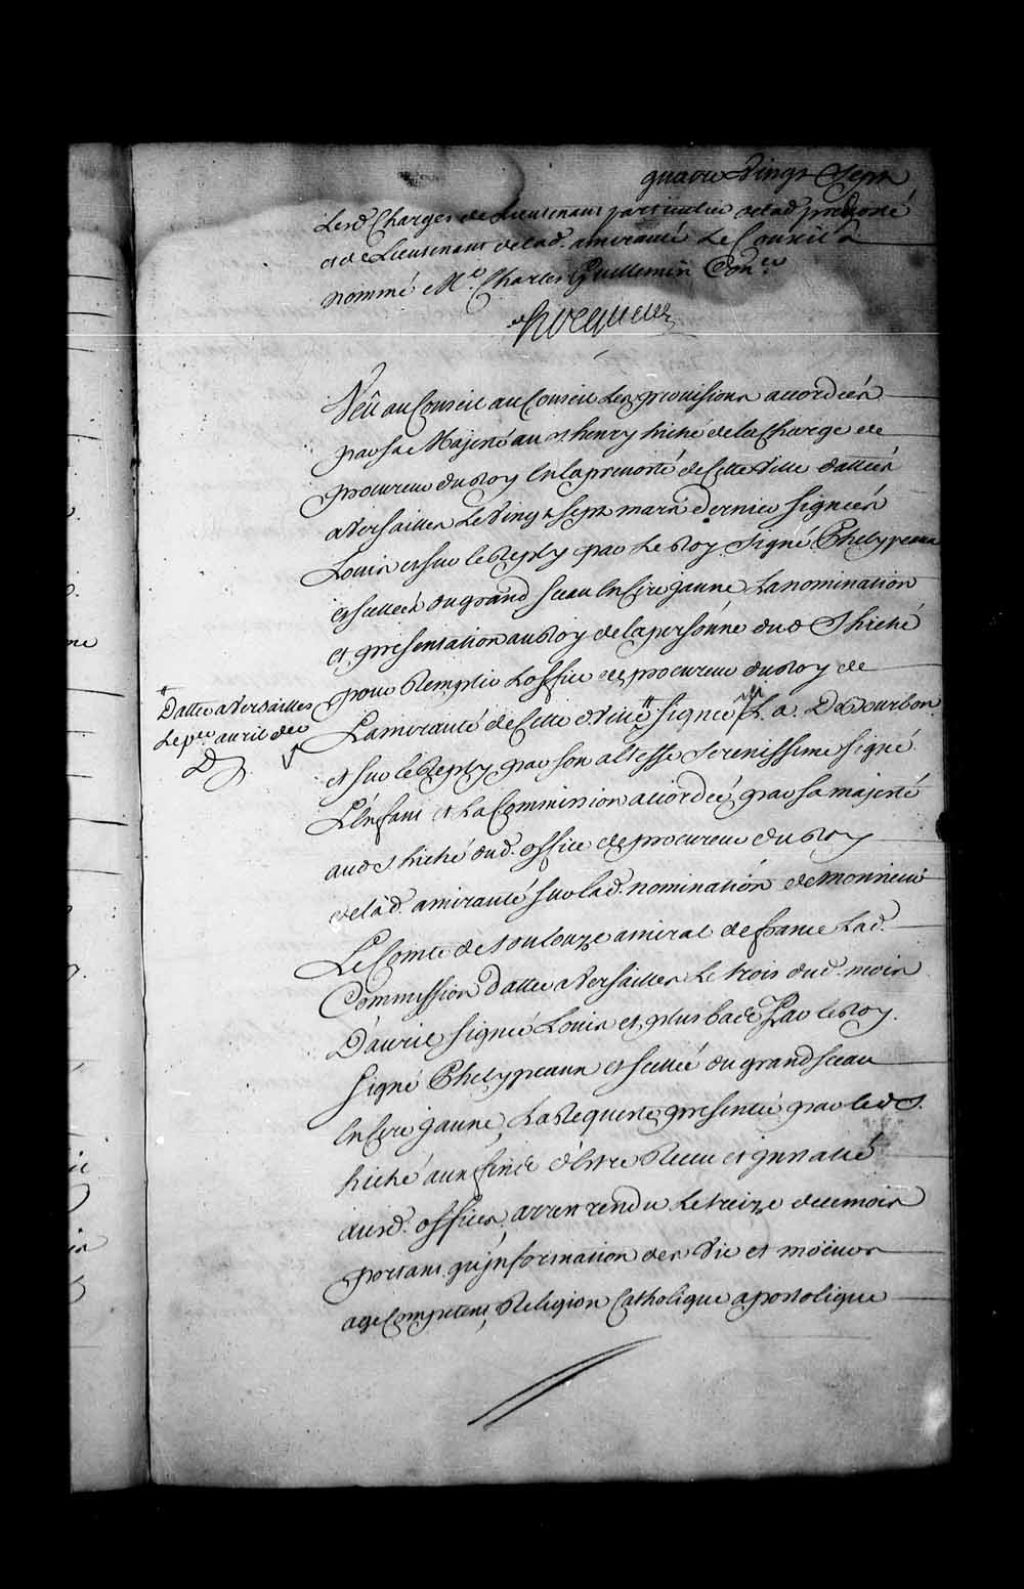 quatre Vingt Sept
Lesd. Charges de Lieutenant particulier delad. prevosté
et de Lieutenant delad. amirauté Le Conseil a
nommé Me. Charles Guillemin Coner.
hocquart
Veû au Conseil au Conseil Les provisions accordeés
par sa Majesté au sr. henry hiché dela Charge de
procureur du Roy En la prevosté de Cette Ville dattées
a Versailles Le Vingt Sept mars dernier Signeés
Louis et sur le Reply par Le Roy Signé Phelypeaux
et sceelleés du grand Sceau En Cire jaune, La nomination
et presentation au Roy de la personne dud. S. hiché
pour Remplir L'office de procureur du Roy de
L'amirauté de Cette Ville # Signeé L. a. De Bourbon
et sur le Reply par son altesse Serenissime Signé
L'Enfant et La Commission accordeé par sa majesté
aud S. hiché dud. office de procureur du Roy
delad. amirauté sur lad. nomination de Monsieur
Le Comte de Toulouze amiral de france Lad.
Commission dattee a Versailles Le trois dud. mois
D'avril Signeé Louis et plus bas Par le Roy.
Signé Phelypeaux et scelleé du grand sceau
En Cire jaune, La Requeste presenteé par led S.
hiché aux fins d'Estre Receu et jnstalé
auxd. offices, arrest rendu Le treize de ce mois
portant qu'jnformation des Vie et moeurs
age Competent, Religion Catholique apostolique
# Dattée a Versailles
Le per. avril der